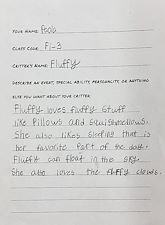 YOUR NAME:
CLASS CODE: F1-3
CRITTER'S NAME: Fluffy
DESCRIBE AN EVENT, SPECIAL ABILITY, PERSONALITY, OR ANYTHING
ELSE YOU WANT ABOUT YOUR CRITTER:
Fluffy loves fluffy stuff
like Pillows and Squishmellows.
She also likes sleeping that is
her favorite Part of the day.
Fluffy can float in the sky.
She also loves the fluffy clouds.